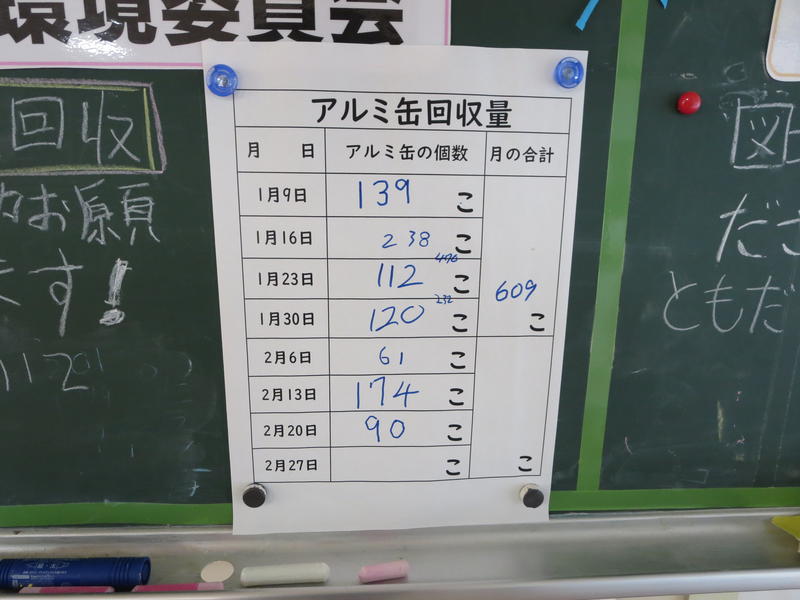 環境委員会
回収
お願
ます!
112
アルミ缶回収量
月 日 アルミ缶の個数 月の合計
1月9日 139 こ
1月16日 238 こ
476
1月23日 112 こ
232
1月30日 120 こ 609 こ
2月6日 61 こ
2月13日 174 こ
2月20日 90 こ
2月27日 こ こ
図
ださ
ともだ